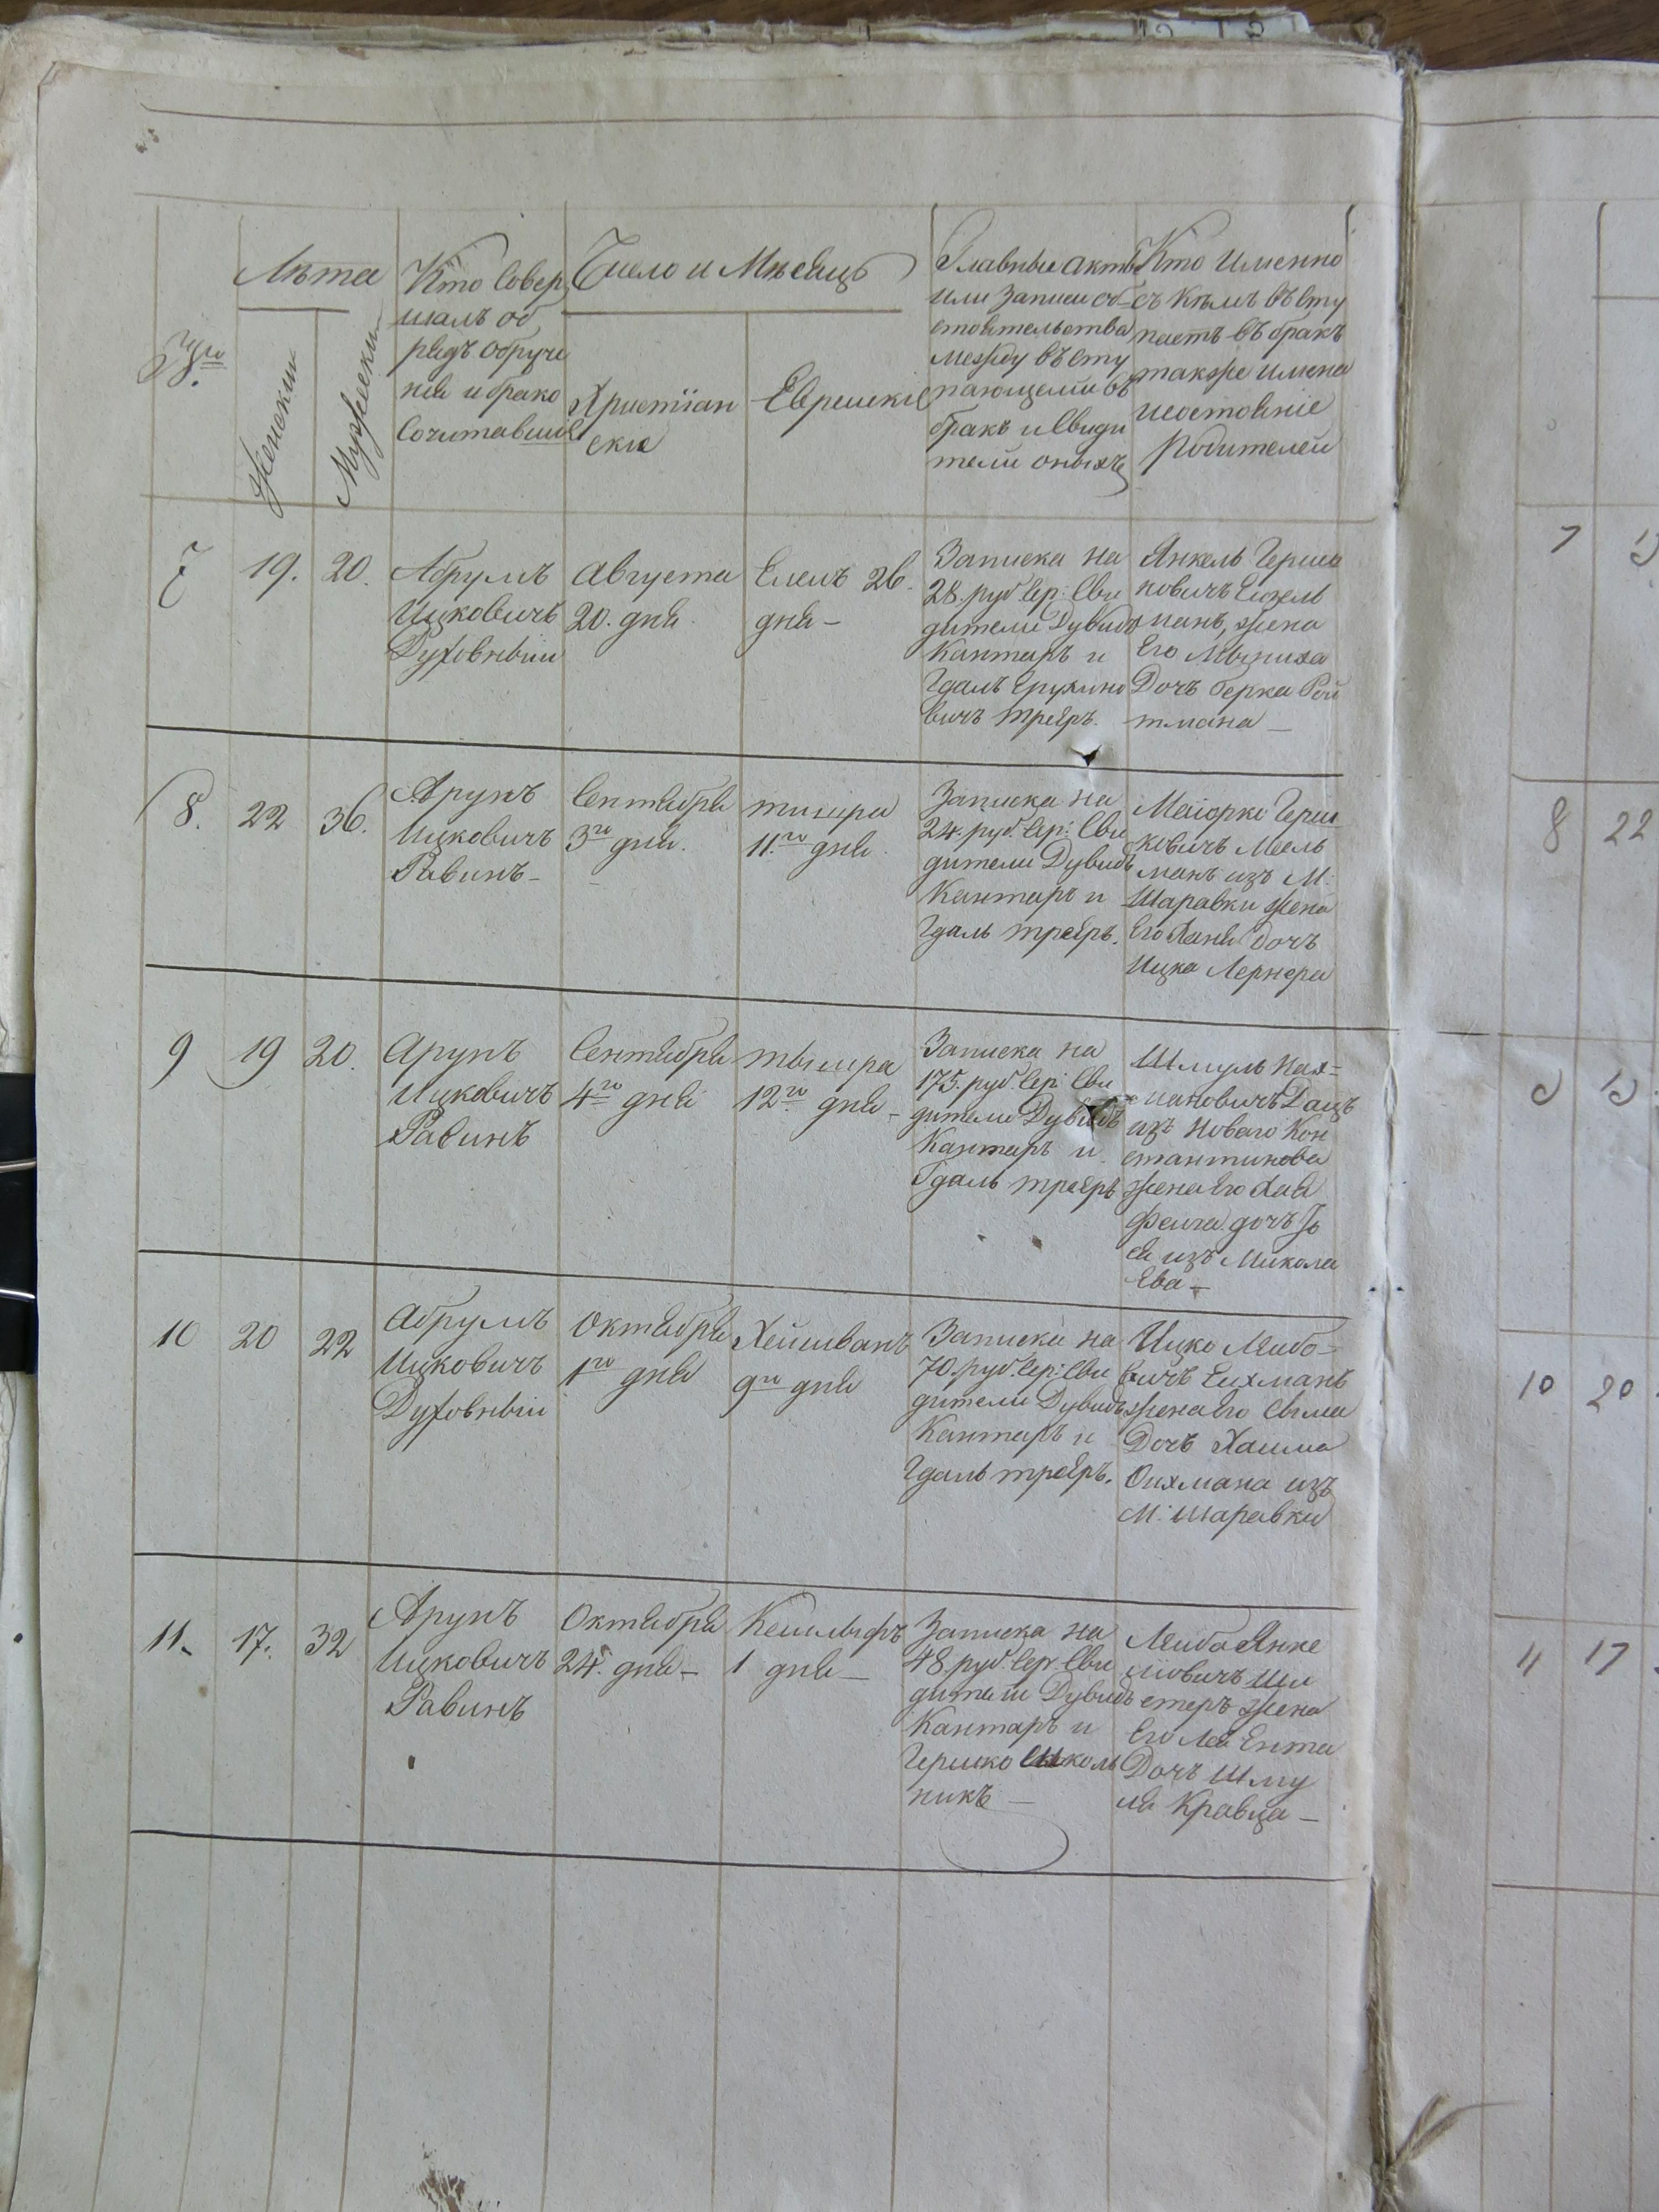 Лѣта
Женски
Мужески
Кто Совер
шалъ об
рядъ обруче
нія и брако
Сочитавшій
Число и Мѣсяцъ
Христіан
скіе
Еврейскіе
Главные акты
или Записи об
стоятельства
между въсту
пающими въ
бракъ и Свиди
тели оныхъ
Кто именно
съ Кѣмъ въсту
паетъ въ бракъ
также имена
исостояніе
Родителей
7
19.
20.
Абрумъ
Ицковичъ
Духовный
Августа
20. дня.
Елелъ 26.
дня –
Записка на
28. руб. Сер: Сви
дители Дувидъ
Кантаръ и
Гдаль Ерухимо
вичъ трегръ.
Янкель Герш
ковичъ
манъ, жена
Его
Дочъ Берка Рой
тмана –
8.
22
36.
Арунъ
Ицковичъ
Равинъ –
Сентября
3го дня.
тишра
11.го дня.
Записка на
24. руб. Сер: Сви
дители Дувидъ
Кантаръ и
Гдаль трегръ.
Маіорко Герш
ковичъ Мель
манъ изъ М:
Шаравки жена
Его Ханя Дочъ
Ицка Лернера
9
19
20.
Арунъ
Ицковичъ
Равинъ
Сентября
4го дня
тышра
12го дня –
Записка на
175. руб. Сер: Сви
дители Дувидъ
Кантаръ и
Гдаль трегръ
Шмуль Нах=
мановичъ Дацъ
изъ Новаго Кон
стантинова
жена Его Хая
Фейга дочъ
изъ Микола
Ева –
10
20
22
Абрумъ
Ицковичъ
Духовный
Октября
1го дня
Хешванъ
9го дня
Записка на
70. руб. Сер: Сви
дители Дувидъ
Кантаръ и
Гдаль трегръ.
Ицко Лейбо=
вичъ Ейхманъ
жена Его Сыма
Дочъ Хаима
Оихмана изъ
М: Шаравки
11.
17.
32
Арунъ
Ицковичъ
Равинъ
Октября
24. дня –
Кешлывъ
1 дня –
Записка на
48. руб. Сер: Сви
дители Дувидъ
Кантаръ и
Гершко Школь
никъ –
Лейба Янке
лїовичъ Ши
стеръ жена
Его Лея Ента
Дочъ Шму
ля Кравца –
7
8
22
10
20
11
17